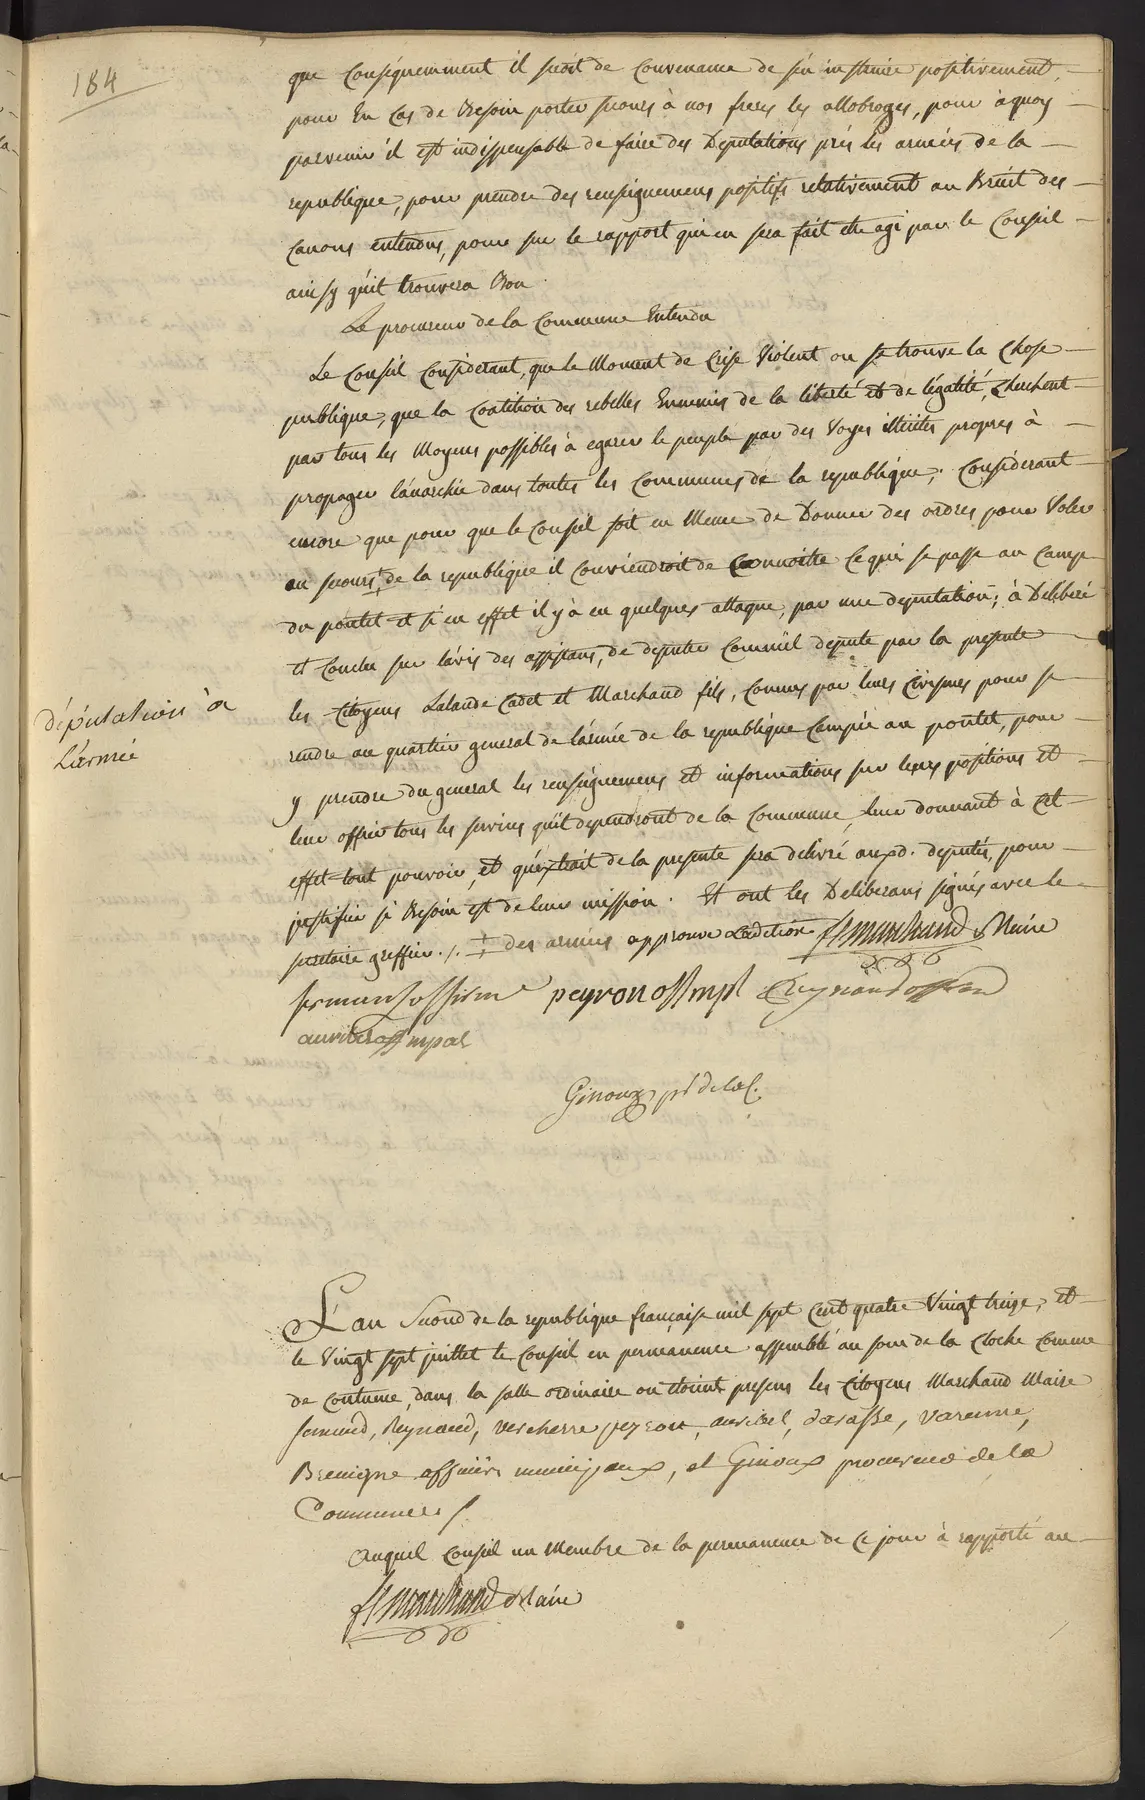 184
que Conséquemment il seroit de Convenance de s'en instruire positivement,
pour En Cas de Besoin porter secours à nos freres les allobroges, pour àquoy
parvenir il est indispensable de faire des Deputations près les armées de la
republique, pour prendre des renseignemens positifs relativement au Bruit des
Canons entendus, pour sur le rapport qui en sera fait etre agi par le Conseil
ainsy qu'il trouvera Bon.
Le procureur de la Commune Entendu
Le Conseil Considerant, que le Moment de Crise Violent ou se trouve la Chose
publique, que la Coalition des rebelles Ennemis de la liberté et de légalité, Cherchent
par tous les Moyens possibles à egarer le peuple par des Voyes illicites propres à
propager lánarchie dans toutes les Communes de la republique; Considerant
encore que pour que le Conseil soit en Meme de Donner des ordres pour Voler
au secours de la republique il Conviendroit de Connoitre Ce qui se passe au Camp
du pontet et si en effet il y à eu quelques attaque, par une deputation; à Deliberé
et Conclu sur lávis des assistans, de deputer Comm'il depute par la presente
les Citoyens Lalande Cadet et Marchand fils, Connus par leurs Civismes pour se
rendre au quartier general de lármée de la republique Campée au pontet, pour
y prendre du general les renseignemens et informations sur leurs positions et
leur offrir tous les services qu'il dependront de la Commune, leur donnant à Cet
effet tout pouvoir, et qu'extrait de la presente sera delivré auxd. deputés, pour
justifier si Besoin est de leur mission. Et ont les Deliberans signés avec le
secretaire greffier ./. des armées approuvé Ladition ff marchand Maire
députation à
L'armée
peyron off mpl Reynaud off
auribel off mpal
Ginoux pr de la C.
L'an Second de la republique française mil sept Cent quatre Vingt treize, et
le Vingt sept juillet le Conseil en permanence assemblé au son de la Cloche Comme
de Coutume, dans la salle ordinaire ou étoint presens les Citoyens Marchand Maire
Reynaud, Vercherre peyron, auribel, davasse, Varenne,
Benigne officiers municipaux, et Ginoux procureur de la
Commune
Auquel Conseil un Membre de la permanence de Ce jour à rapporté au
ff marchand Maire